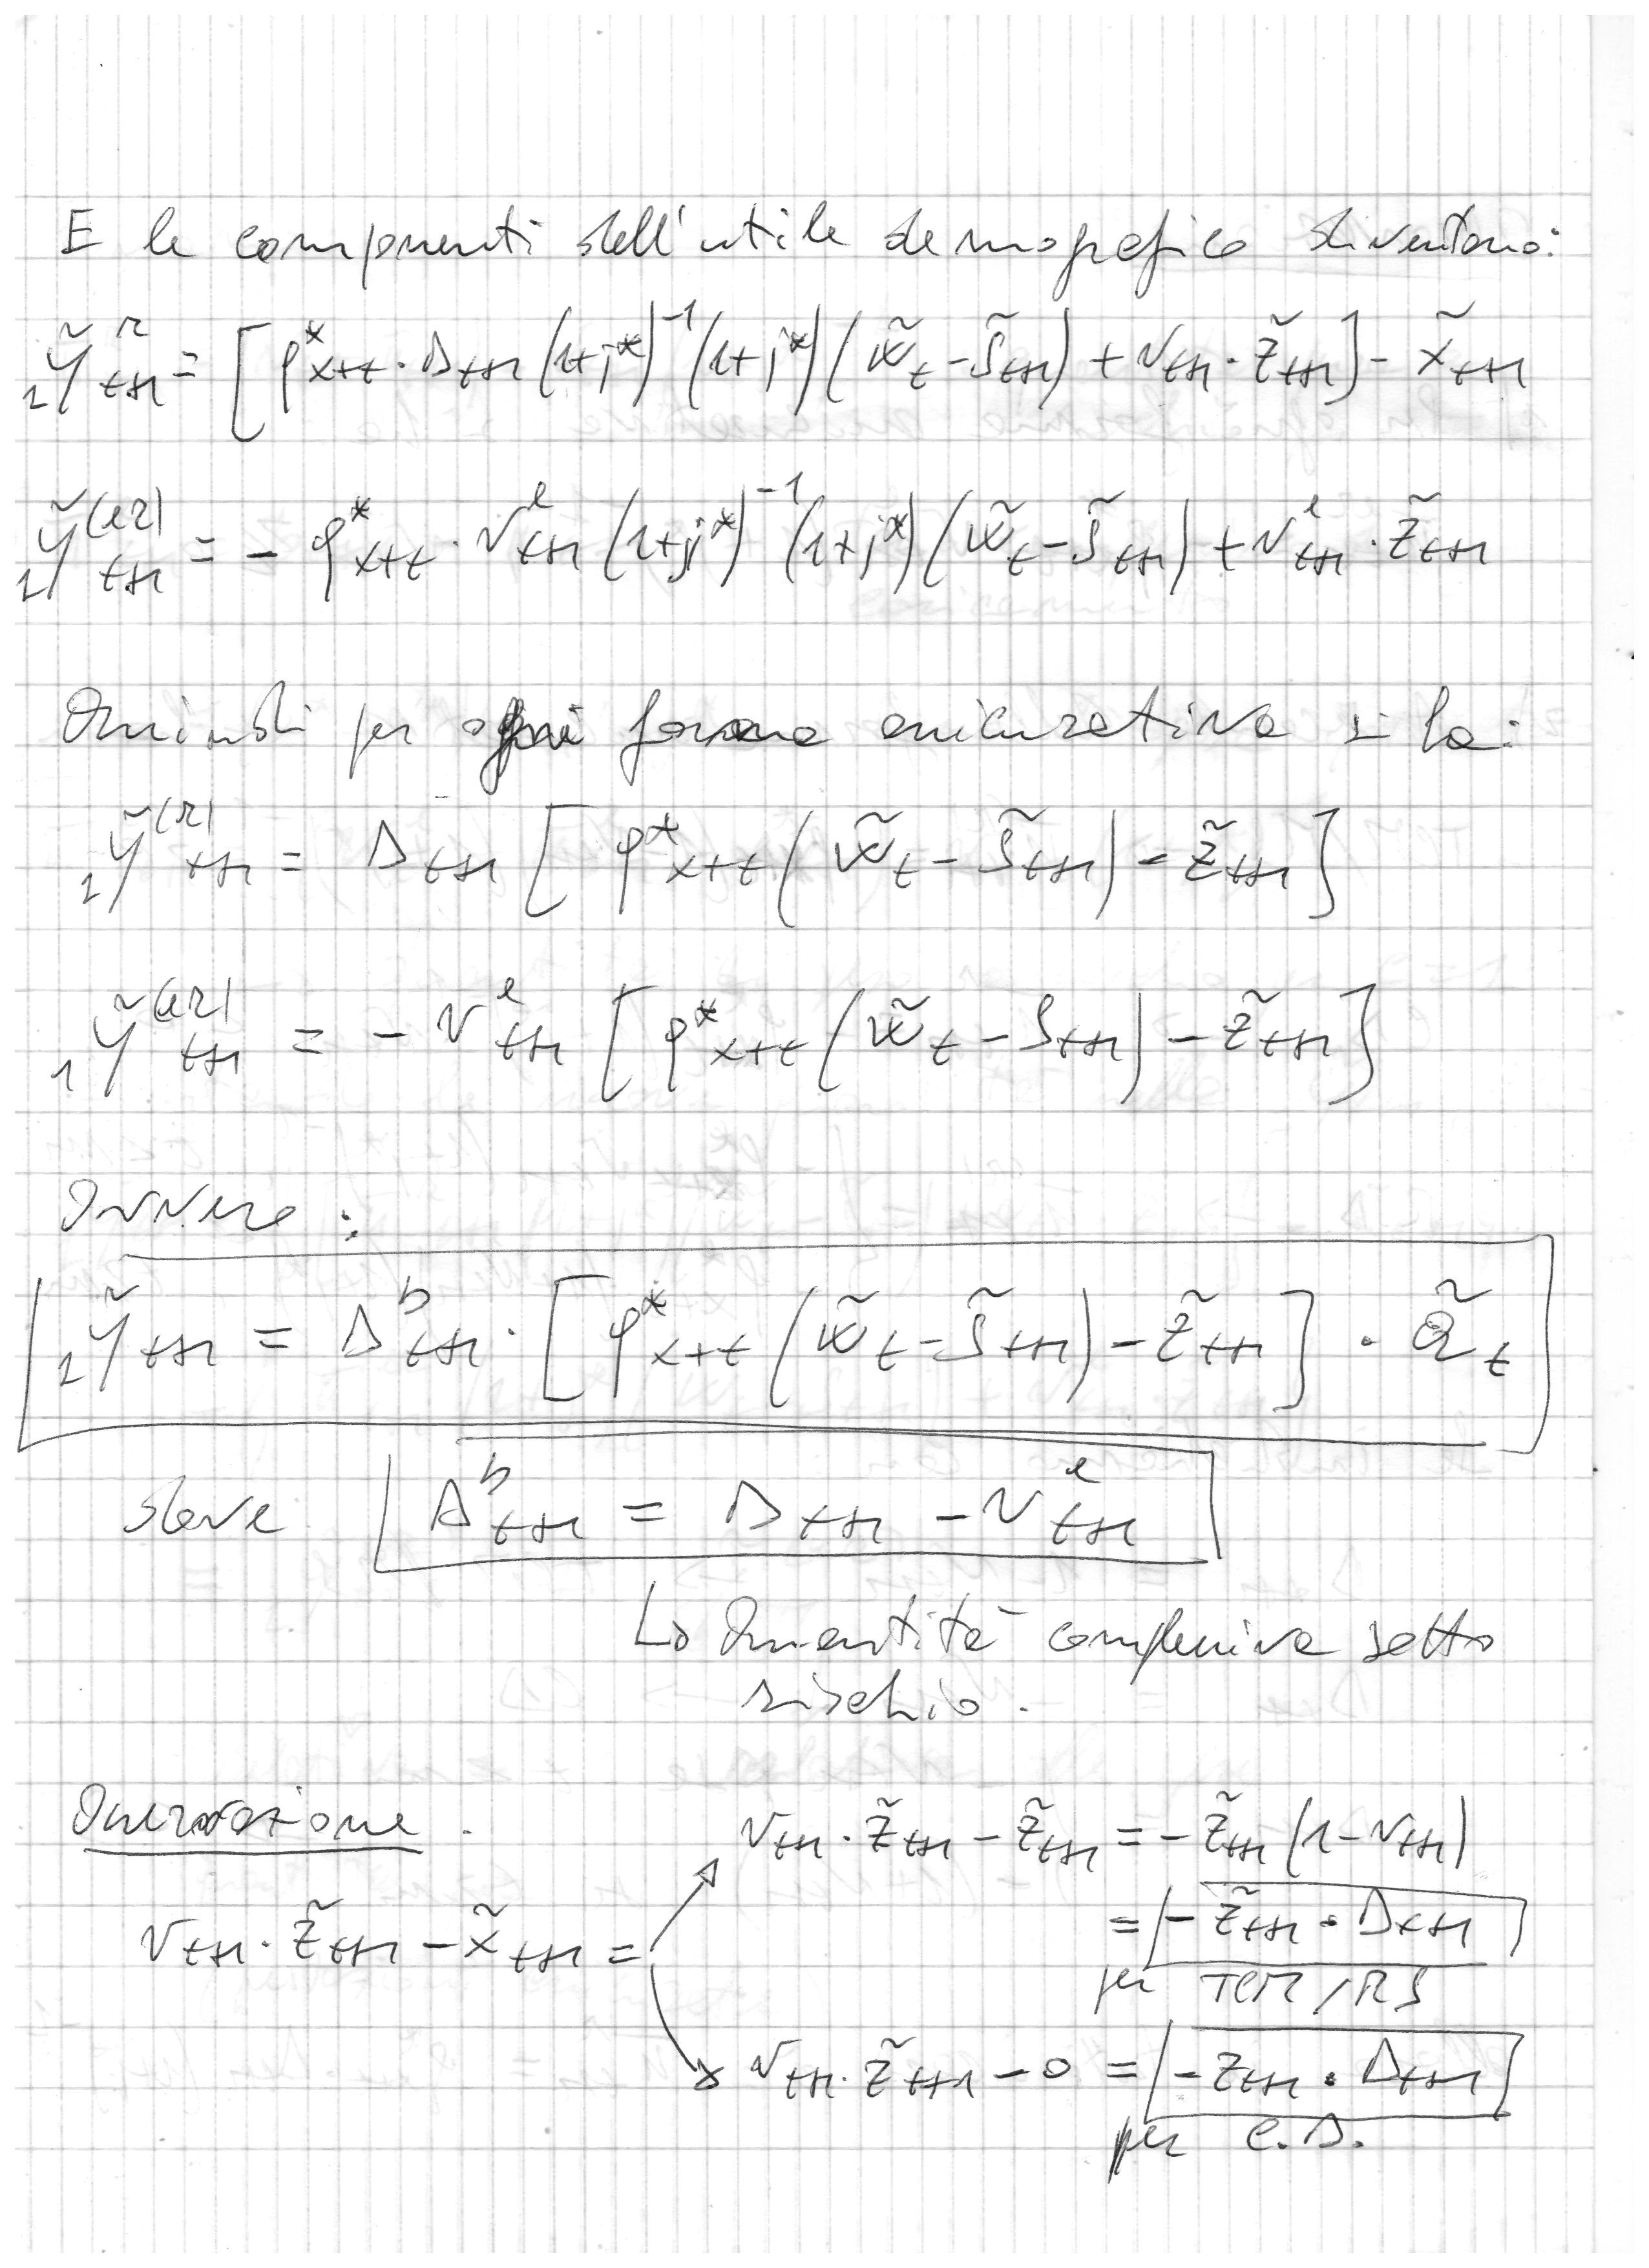 E le componenti dell'utile demografico diventano:
₁ỹ^r_{t+1} = [φ*_{x+t} · D_{t+1} (1+j*)^{-1} (1+j*) (w̃_t - S̃_{t+1}) + v_{t+1} · z̃_{t+1}] - x̃_{t+1}
₁ỹ^{(er)}_{t+1} = - φ*_{x+t} · v^e_{t+1} (1+j*)^{-1} (1+j*) (w̃_t - S̃_{t+1}) + v^e_{t+1} · z̃_{t+1}
Quindi per ogni forma assicurativa si ha:
₁ỹ^{(r)}_{t+1} = D_{t+1} [φ*_{x+t} (w̃_t - S̃_{t+1}) - z̃_{t+1}]
₁ỹ^{(er)}_{t+1} = - v^e_{t+1} [φ*_{x+t} (w̃_t - S_{t+1}) - z̃_{t+1}]
Ovvero :
₁ỹ_{t+1} = Δ^b_{t+1} · [φ*_{x+t} (w̃_t - S̃_{t+1}) - z̃_{t+1}] · Q̃_t
dove Δ^b_{t+1} = D_{t+1} - v^e_{t+1}
↳ Quantità complessiva sotto
rischio.
Osservazione .
v_{t+1} · z̃_{t+1} - z̃_{t+1} = - z̃_{t+1} (1 - v_{t+1})
= - z̃_{t+1} · D_{t+1}
per TCM / RS
v_{t+1} · z̃_{t+1} - x̃_{t+1} =
v_{t+1} · z̃_{t+1} - 0 = - z_{t+1} · D_{t+1}
per C.D.